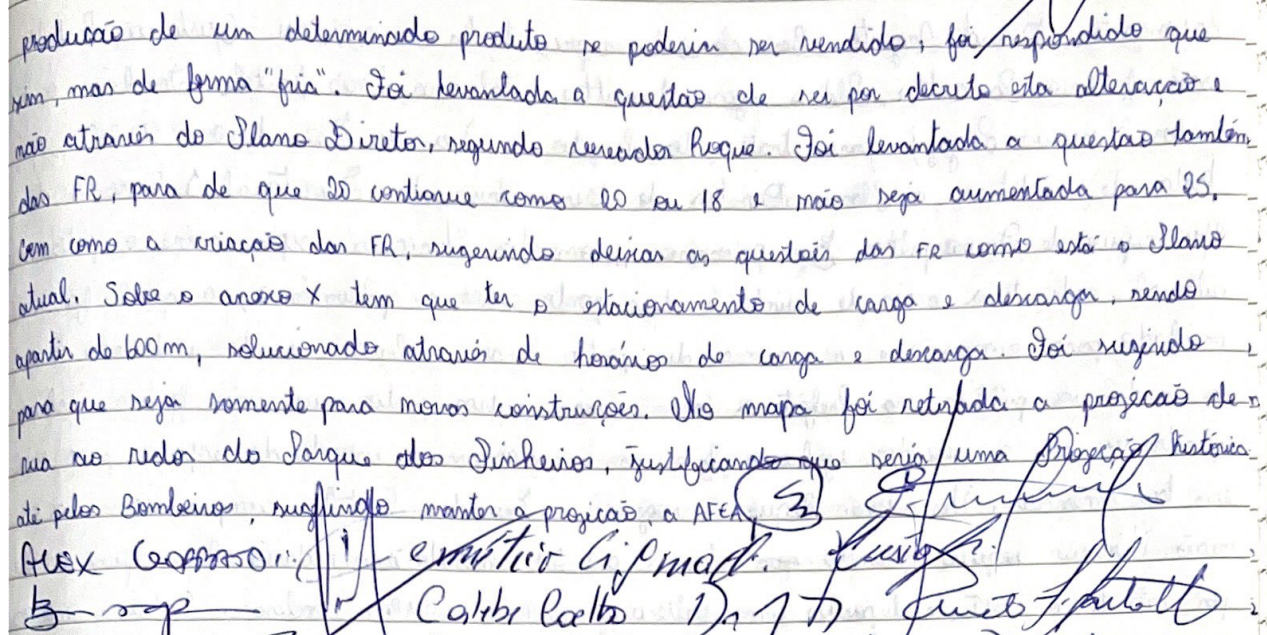 produção de um determinado produto se poderia ser vendido, foi respondido que
sim, mas de forma "fria". Foi levantada a questão de ser por decreto esta alteração e
não através do Plano Diretor, segundo vereador Roque. Foi levantada a questão também
das FR, para de que 20 continue como 20 ou 18 e não seja aumentada para 25,
bem como a criação das FR, sugerindo deixar as questões das FR como está o Plano
atual. Sobre o anexo X tem que ter o estacionamento de carga e descarga, sendo
apartir de 600m, solucionado através de horários de carga e descarga. Foi sugerido
para que seja somente para novas construções. No mapa foi retirada a projeção de
rua ao redor do Parque dos Pinheiros, justificando que seria uma Projeção histórica
até pelos Bombeiros, sugerindo manter a projeção, a AFEA,
Alex
Calebe Coelho